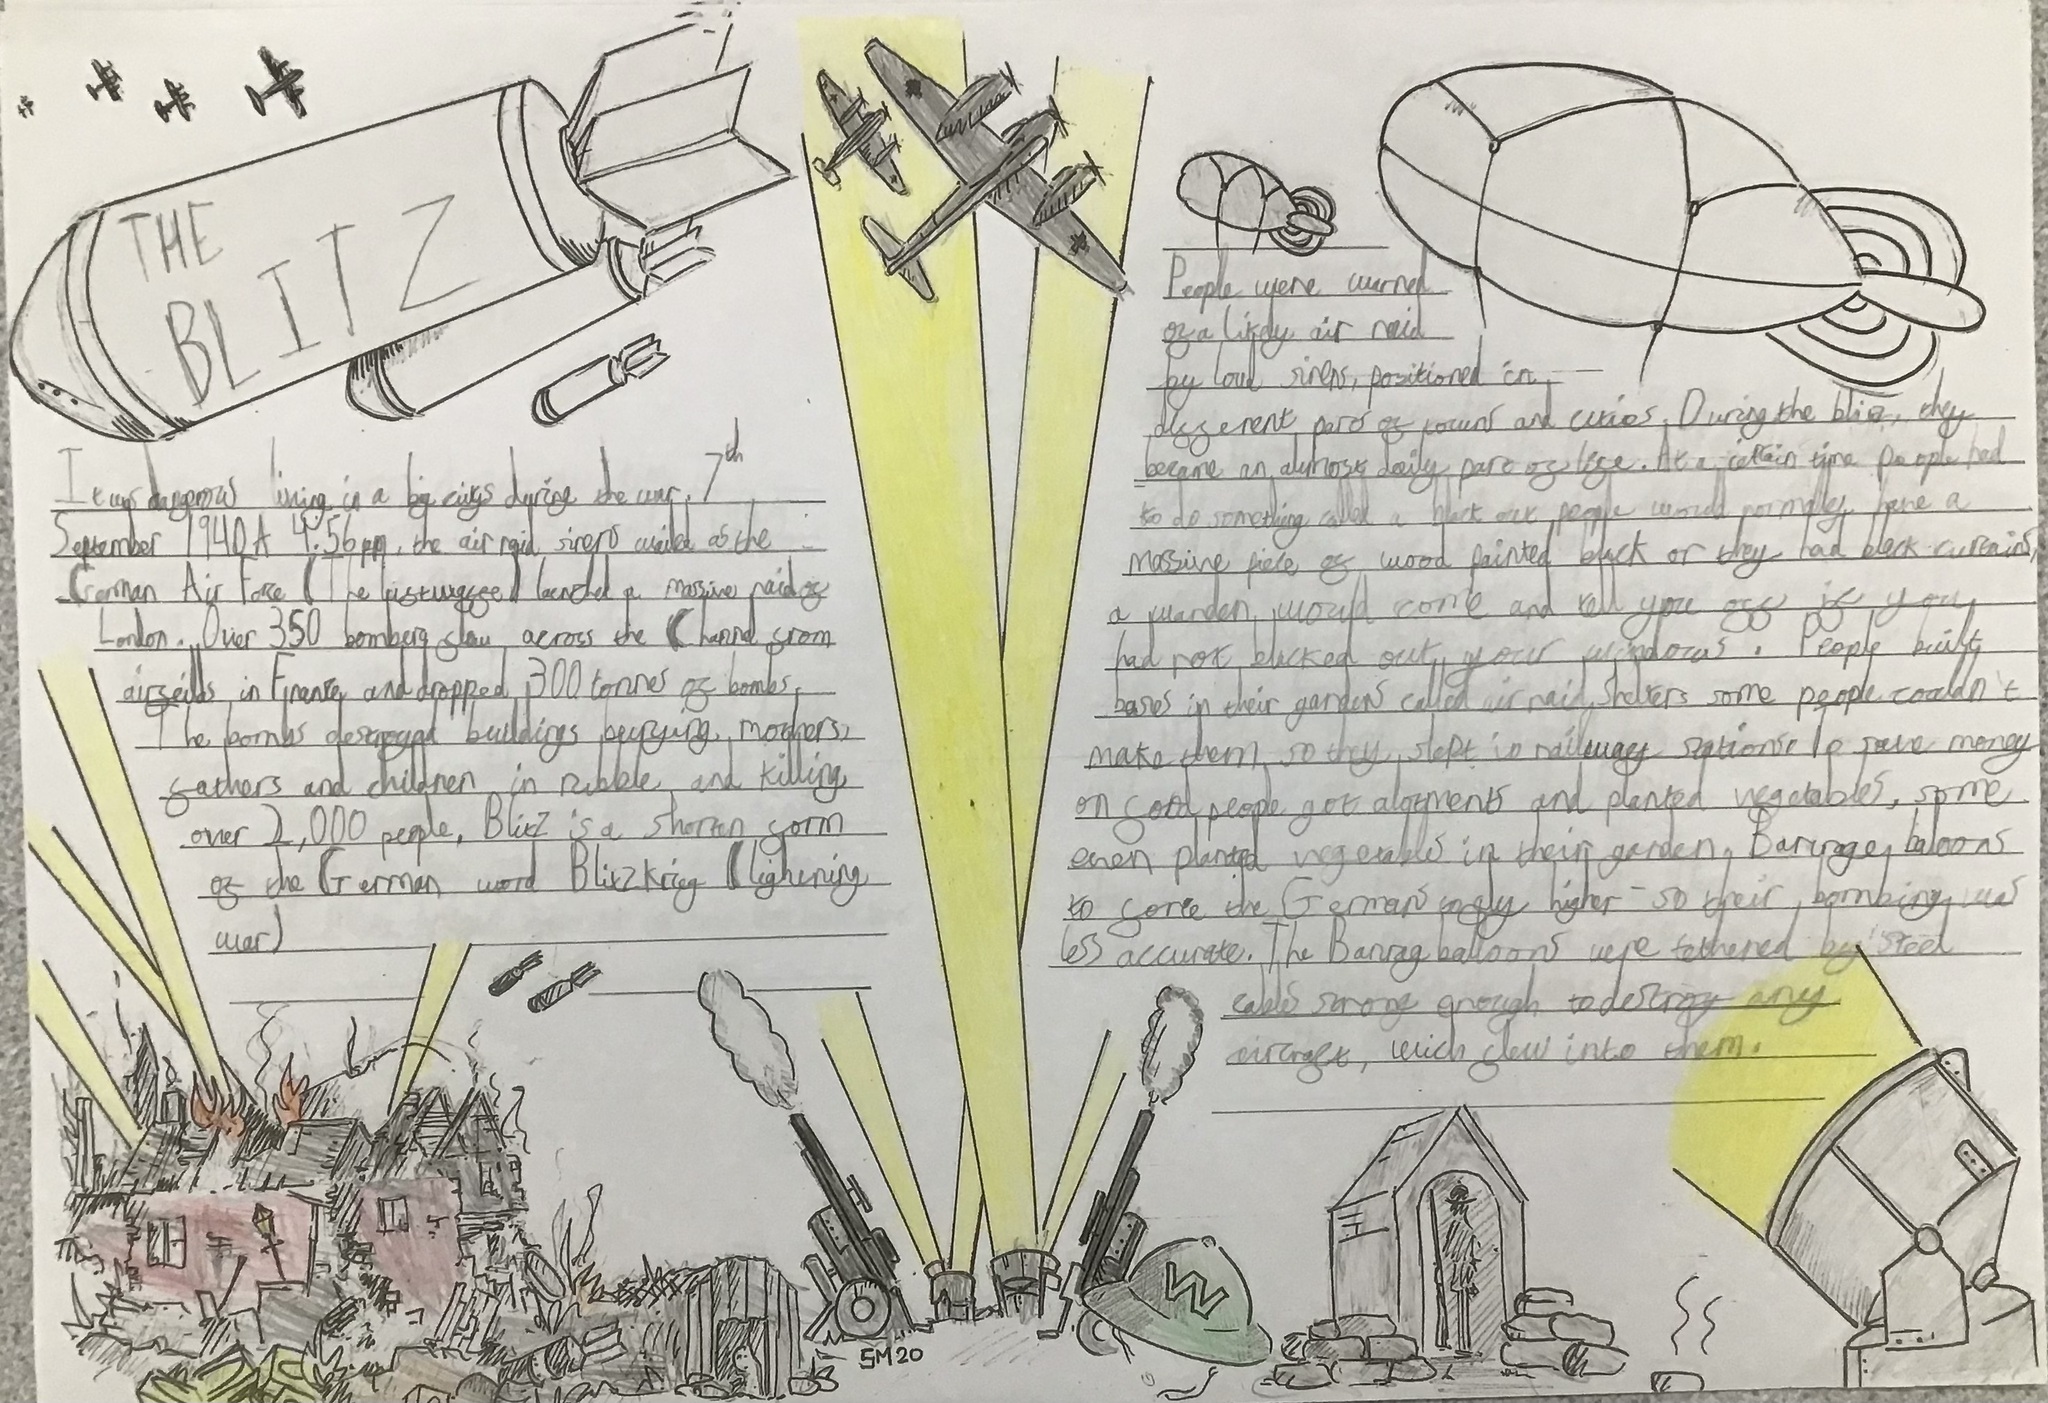 THE
BLITZ
It was dangerous living in a big citys during the war. 7th
September 1940 A 4.56pm, the air raid sirens wailed as the
German Air Force (The luftwaffe) launched a massive raid of
London. Over 350 bombers flew across the Channal from
airfeilds in France and dropped 300 tonnes of bombs.
The bombs destroyed buildings burying mothers,
fathers and children in rubble and killing
over 2,000 people. Blitz is a shorten form
of the German word Blitzkrieg (lighening
war)
People were warned
of a likely air raid
by loud sirens, positioned in
different parts of towns and cities. During the blitz, they
became an almost daily part of life. At a certain time people had
to do something called a black out people would normally have a
massive piece of wood painted black or they had black curtains,
a warden would come and tell you off if you
had not blacked out your windows. People built
bases in their gardens called air raid shelters some people couldn't
make them so they slept in railway stations to save money
on food people got alotments and planted vegetables, some
even planted vegetables in their garden. Barrage baloons
to force the Germans fly higher - so their bombing was
less accurate. The Barrag balloons were tethered by steel
cables strong enough to destroy any
aircraft, wich flew into them.
W
SM20